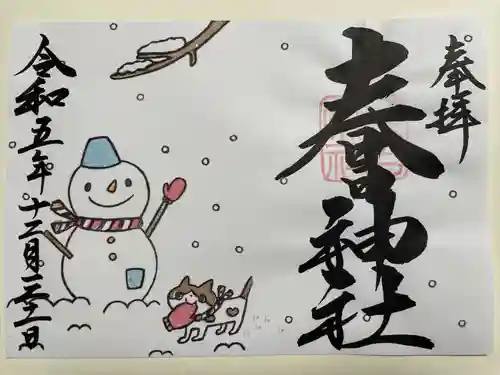 奉拝
春日神社
令和五年十二月